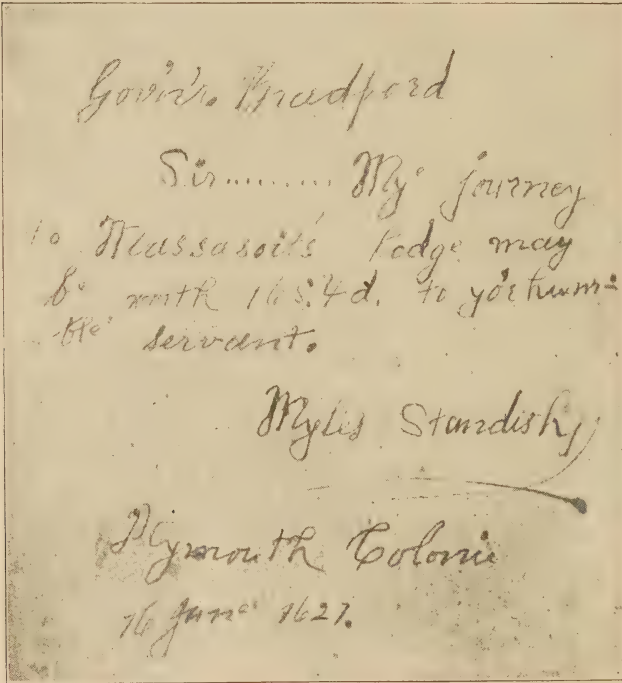 Gov'n'r. Bradford
Sir......... My journey
to Massasoit's Lodge may
be worth 16s. 4d. to yo'r hum=
ble servant.
Myles Standish
Plymouth Colonie
16 June 1627.